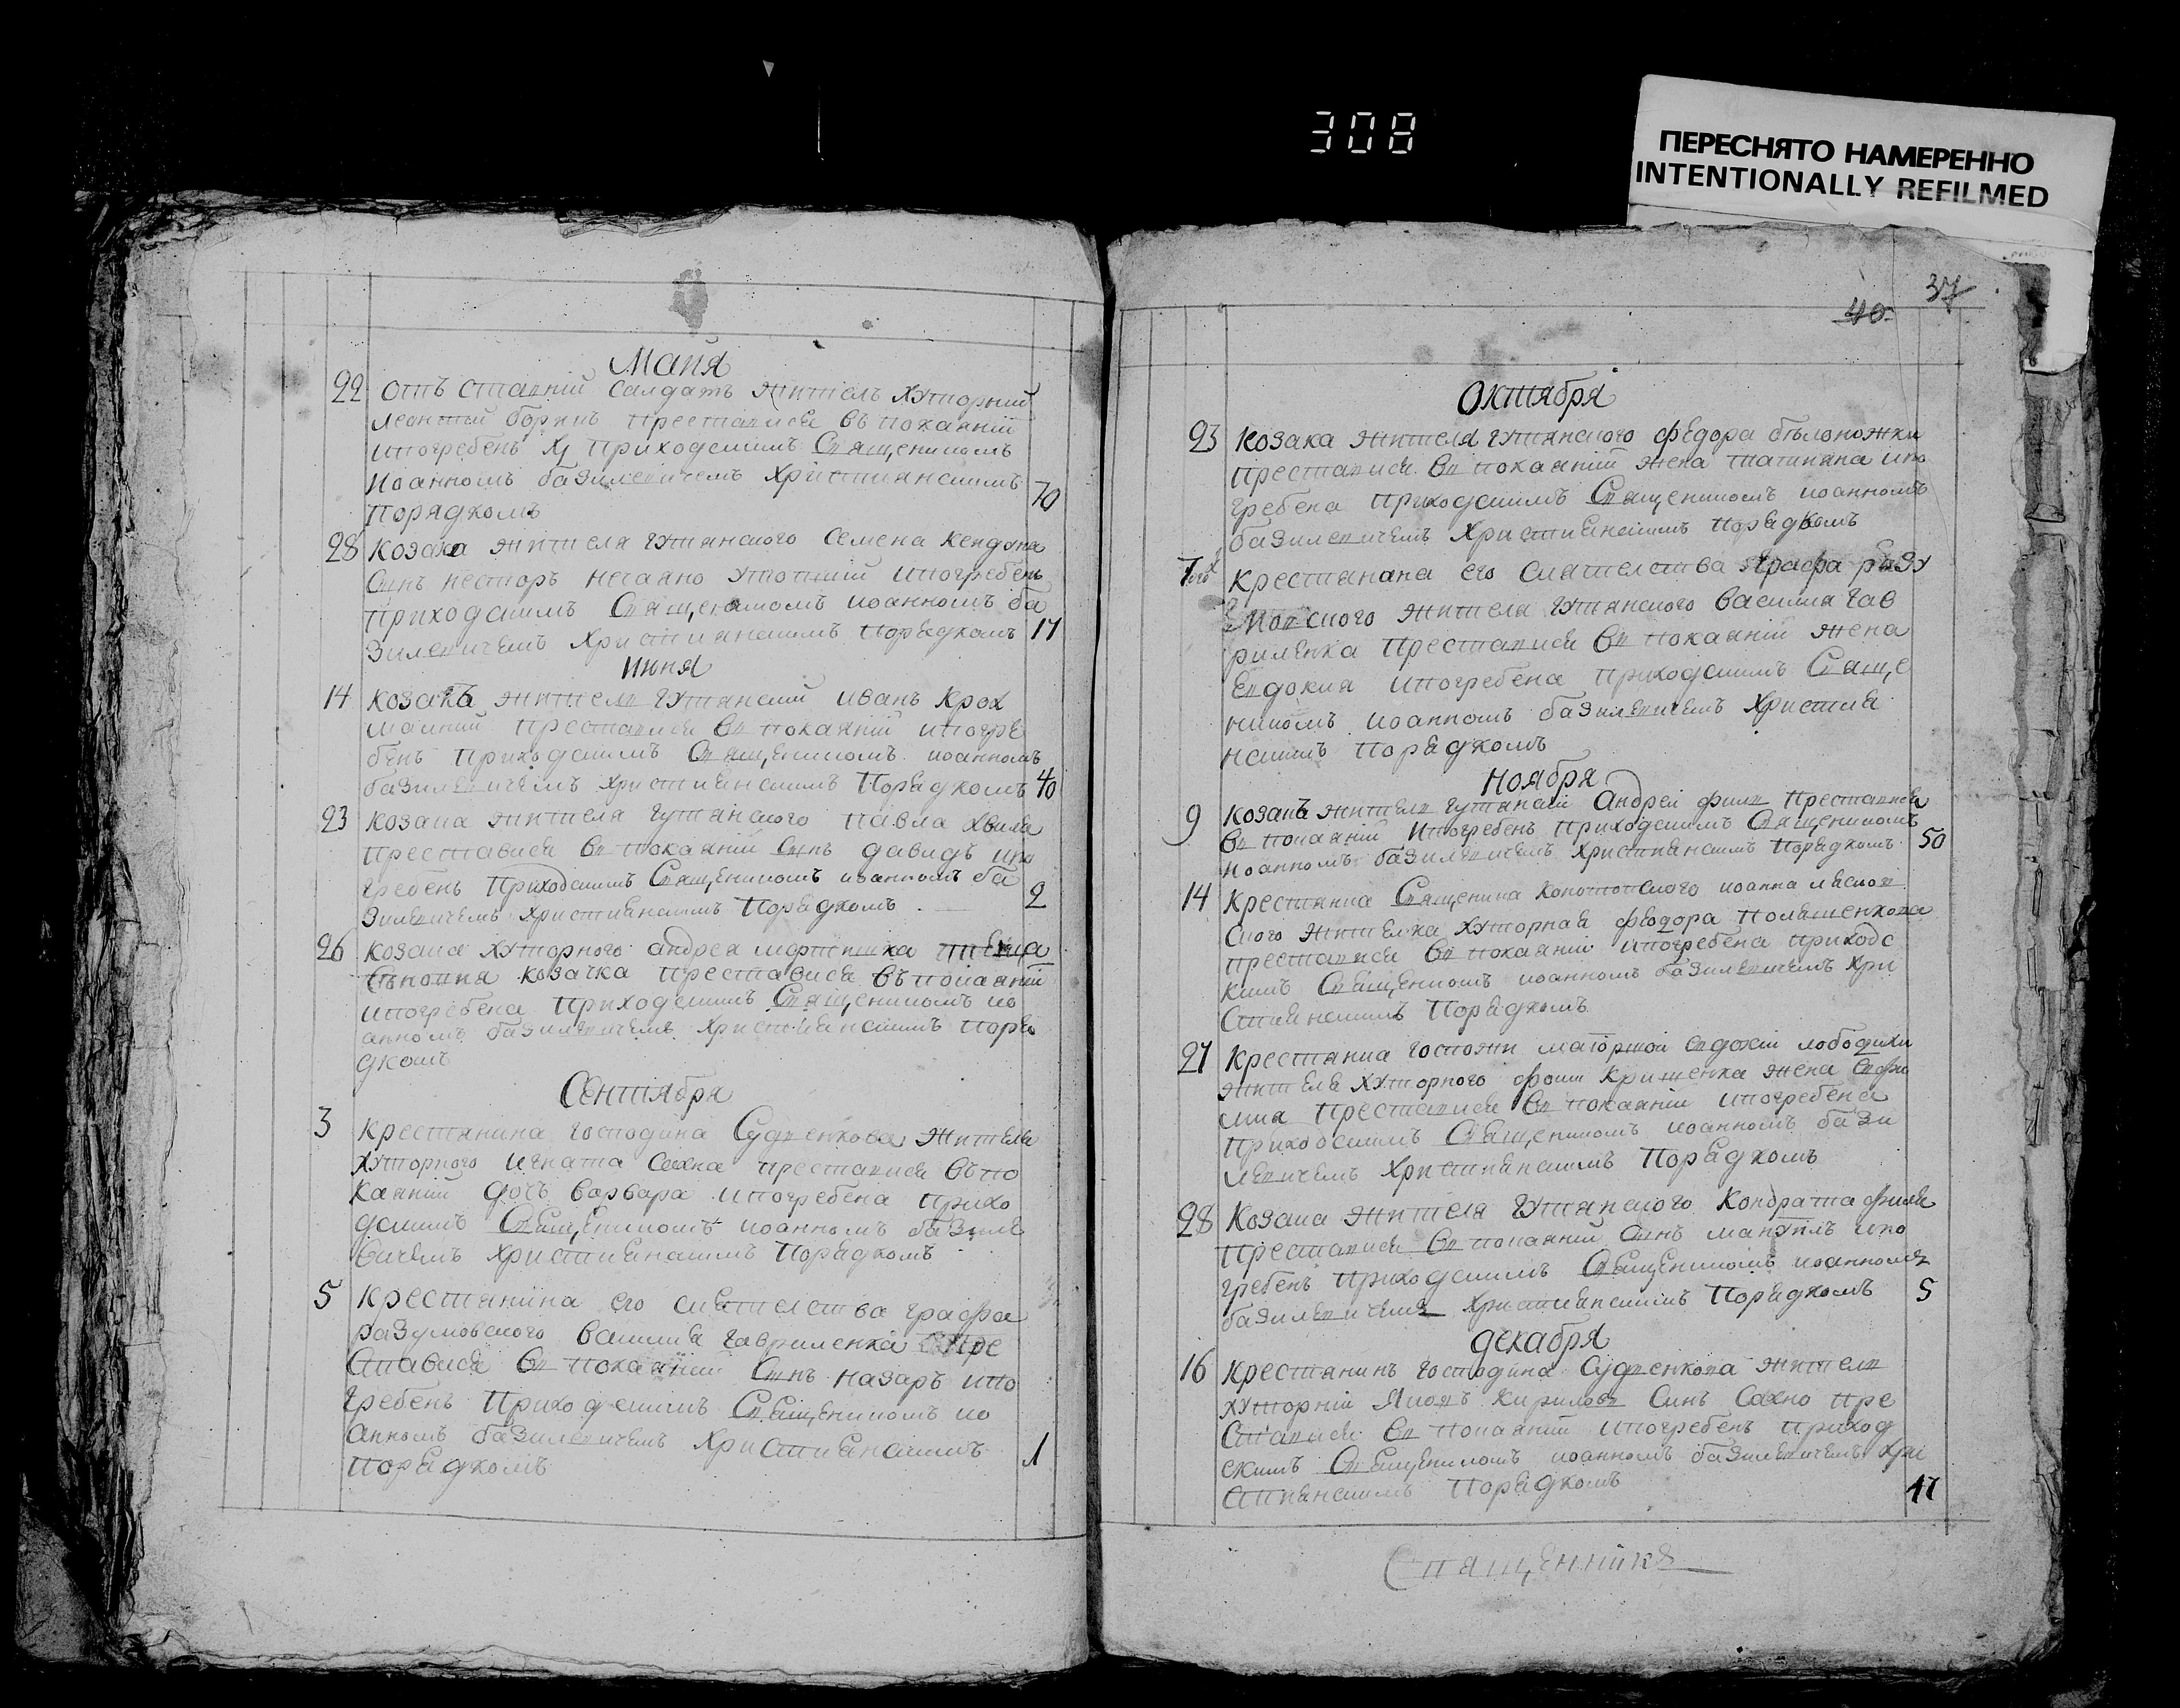 308
ПЕРЕСНЯТО НАМЕРЕННО
INTENTIONALLY REFILMED
Маия
22 отъ ставній салдатъ житель хуторний
леонтий боринъ преставися въ покаяніи
ипогребенъ приходскимъ Священикомъ
иоанномъ базилевичемъ християнскимъ 70
порядкомъ
28 козака жителя гутянского семена
синъ несторъ нечаяно утопший ипогребенъ
приходскимъ Священикомъ иоанномъ ба
зилевичемъ християнскимъ порядкомъ 17
июня
14 козакъ житель гутянский иванъ крох
малний преставися въ покаяніи ипогре
бенъ приходскимъ Священикомъ иоанномъ
базилевичемъ християнскимъ порядкомъ 40
23 козака жителя гутянского павла хвиля
преставися въ покаяніи синъ давидъ ипо
гребенъ приходскимъ Священикомъ иоанномъ ба
зилевичемъ християнскимъ порядкомъ 2
26 козака хуторного андрея
козачка преставися въ покаяніи
ипогребена приходскимъ Священикомъ ио
анномъ базилевичемъ християнскимъ поря
дкомъ
Сентября
3 крестянина господина Судиенкова жителя
хуторного игната сахна преставися въ по
каяніи дочъ варвара ипогребена прихо
дскимъ Священикомъ иоанномъ базиле
вичемъ християнскимъ порядкомъ
5 крестянина его сиятелства графа
разумовского василия гавриленка пре
ставися въ покаяніи Синъ назаръ ипо
гребенъ приходскимъ Священикомъ ио
анномъ базилевичемъ християнскимъ 1
порядкомъ
37
40
Октября
23 козака жителя гутянского федора белоножки
преставися въ покаяніи жена татияна ипо
гребена приходскимъ Священикомъ иоанномъ
базилевичемъ християнскимъ порядкомъ
крестянина его сиятелства графа разу
мовского жителя гутянского василия гав
риленка преставися въ покаяніи жена
евдокия ипогребена приходскимъ Свяще
никомъ иоанномъ базилевичемъ христия
нскимъ порядкомъ
Ноября
9 козакъ житель гутянский андрей филь преставися
въ покаяніи ипогребенъ приходскимъ Священикомъ
иоанномъ базилевичемъ християнскимъ порядкомъ 50
14 крестянка Священика конотопского иоанна
ского жителка хуторная феодора
преставися въ покаяніи ипогребена приходс
кимъ Священикомъ иоанномъ базилевичемъ хри
стиянскимъ порядкомъ
27 крестянина госпожи маіоршой евдокіи лободихи
жителя хуторного фоми жена евфи
мия преставися въ покаяніи ипогребена
приходскимъ Священикомъ иоанномъ бази
левичемъ християнскимъ порядкомъ
28 козака жителя гутянского кондрата филя
преставися въ покаяніи Синъ мануилъ ипо
гребенъ приходскимъ Священикомъ иоанномъ
базилевичемъ християнскимъ порядкомъ 5
декабря
16 крестянинъ господина Судиенкова житель
хуторній яковъ кириловъ Синъ сахно пре
ставися въ покаяніи ипогребенъ приход
скимъ Священикомъ иоанномъ базилевичемъ хри
стиянскимъ порядкомъ 17
Священникъ